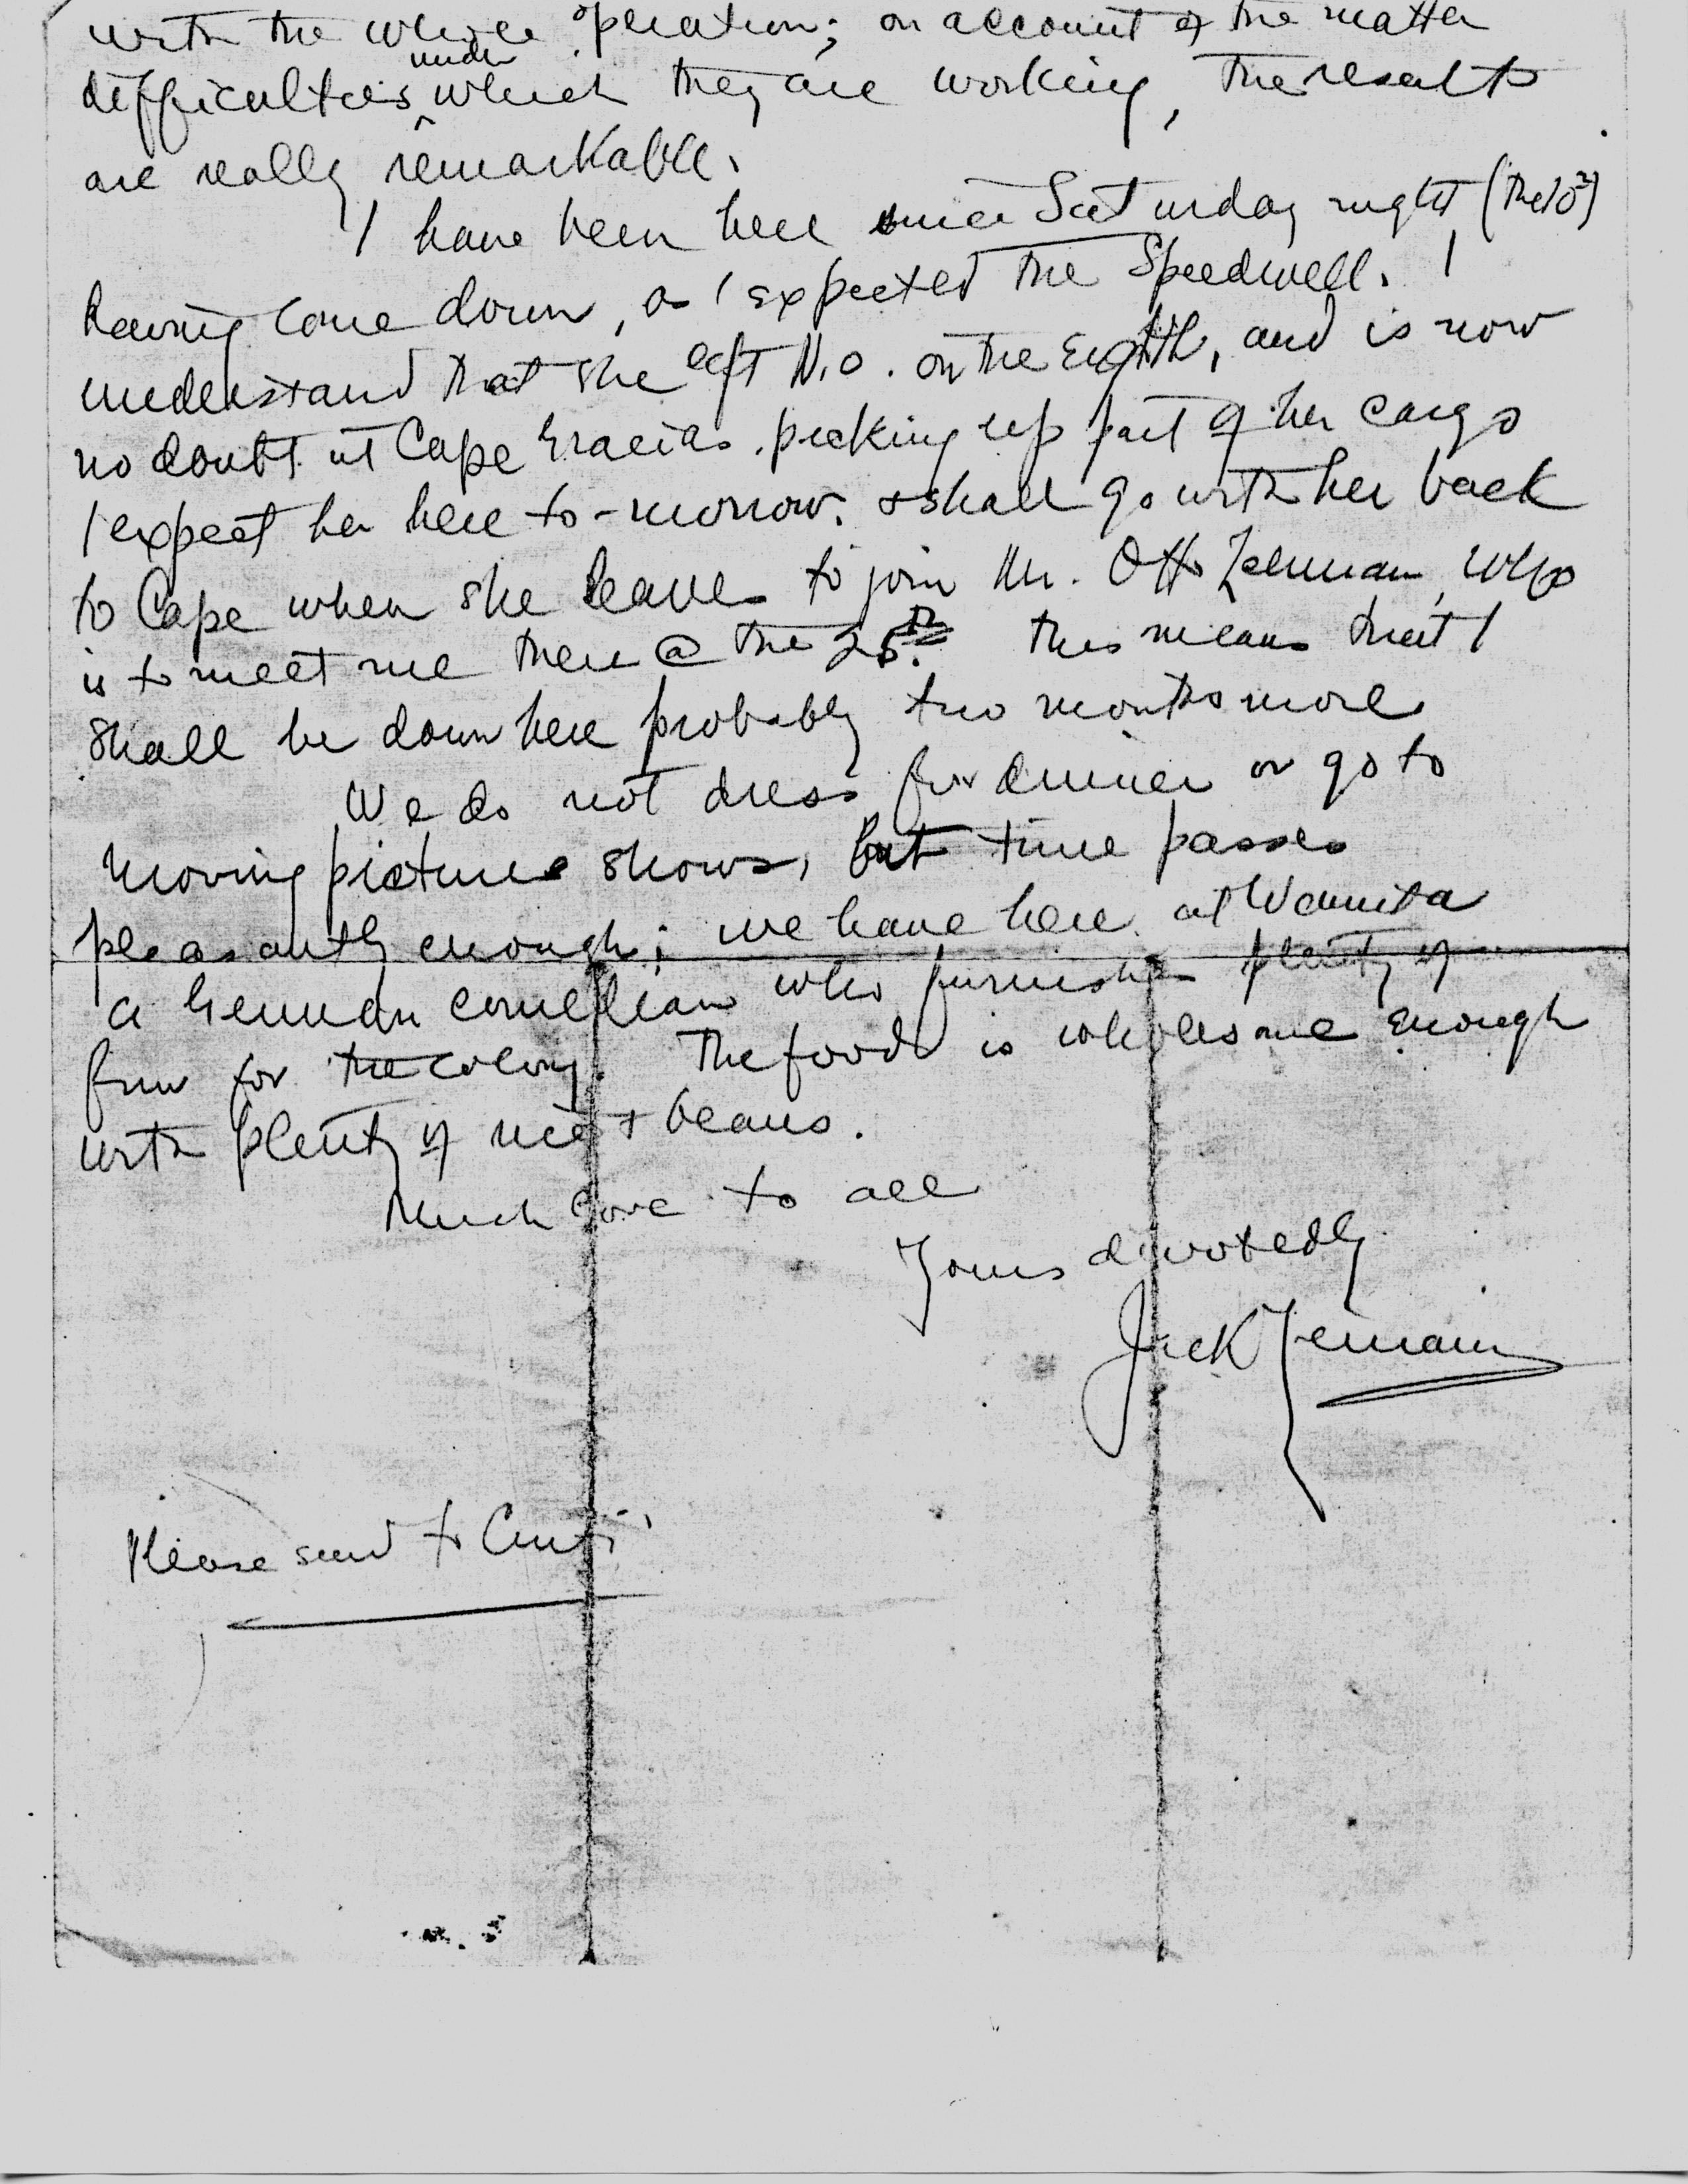 with the whole operation; on account of the matter
under
difficulties which they are working, the results
are really remarkable.
I have been here since Saturday night (the 10th)
having come down, as I expected the Speedwell. I
understand that she left N.O. on the Eighth, and is now
no doubt at Cape Gracias picking up part of her cargo
I expect her here to-morrow. & shall go with her back
to Cape when she leaves to join Mr. Otto Zemurray, who
is to meet me there @ the 25th. this means that I
shall be down here probably two months more
We do not dress for dinner or go to
moving picture shows, but time passes
pleasantly enough; we have here at Wounta
a German comedian who furnishes plenty of
fun for the colony. The food is wholesome enough
with plenty of rice & beans.
Much love to all
Yours devotedly
Jack
Please send to